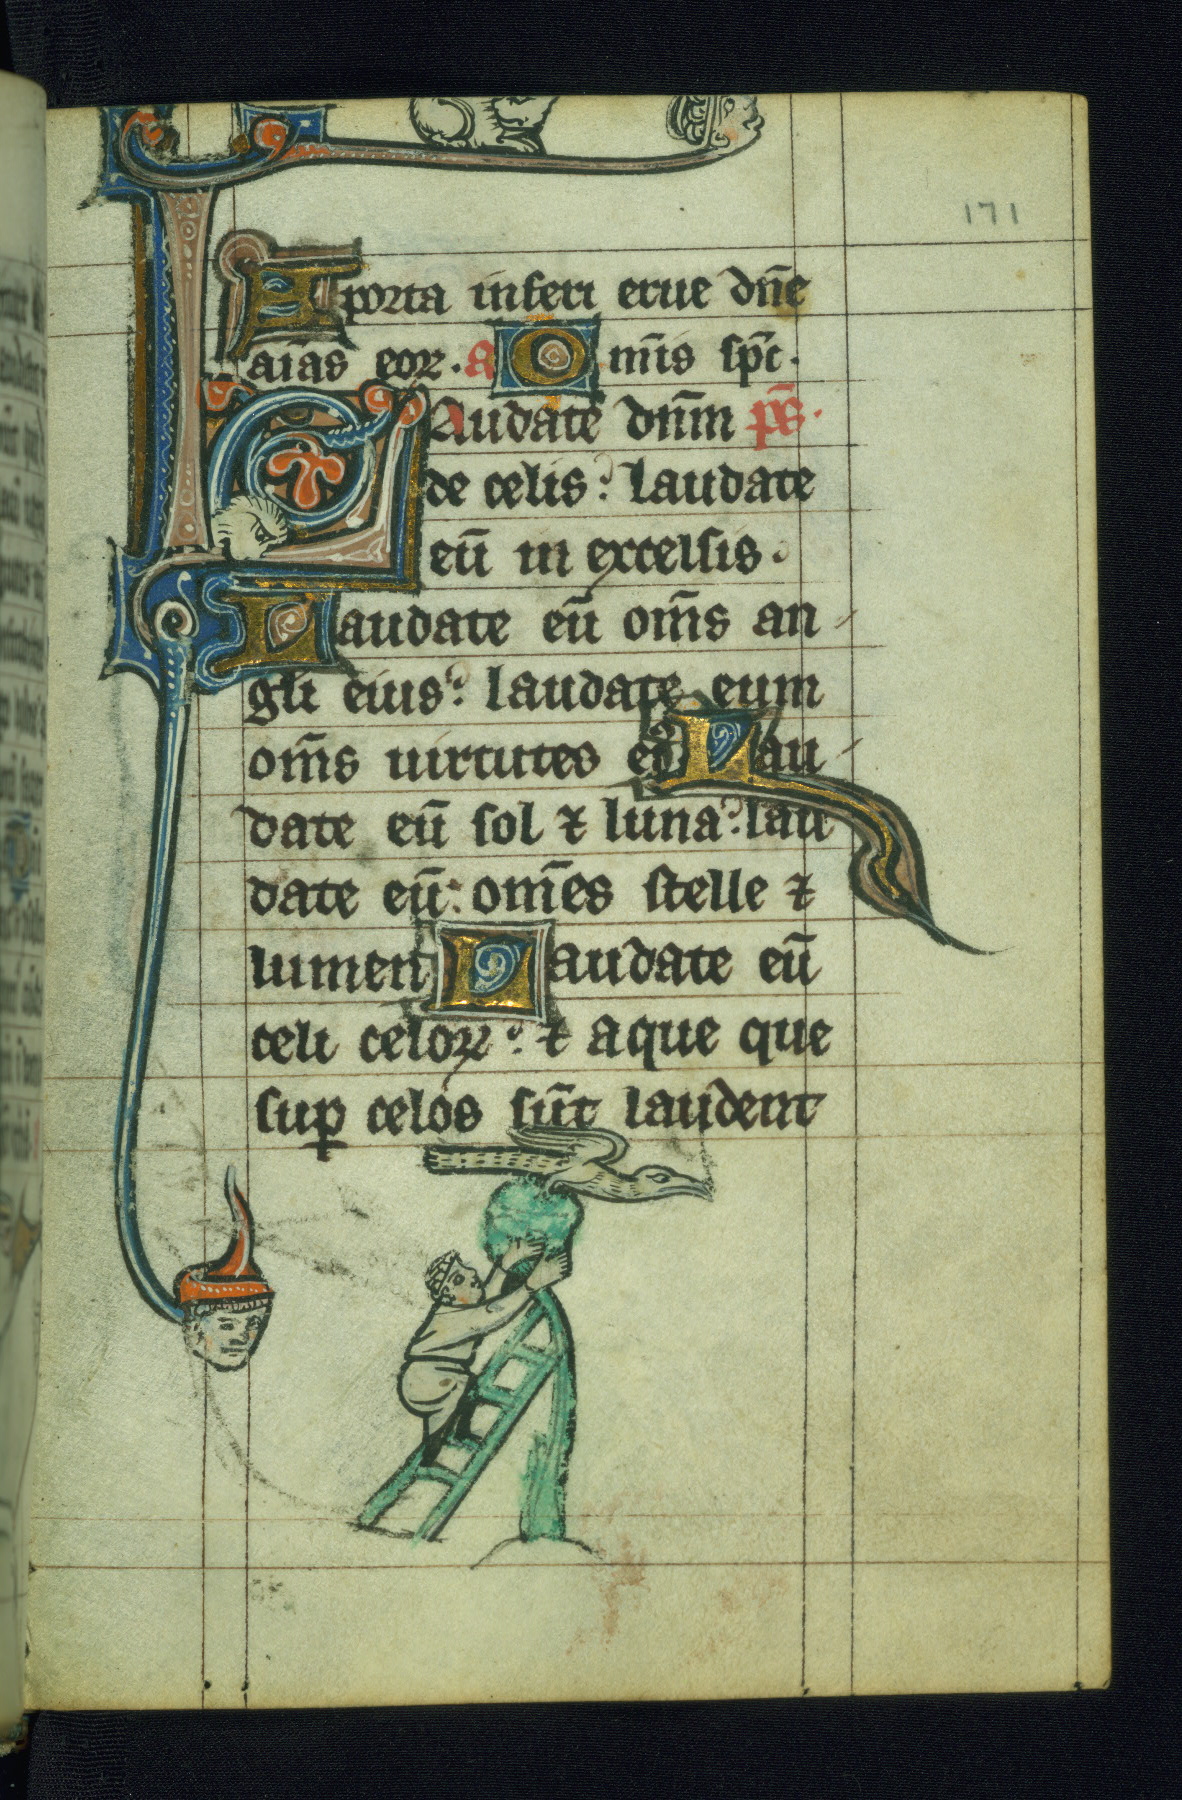 171
E porta inferi erue dn̄e
aīas eoꝝ. a Om̄is sp̄c.
Laudate dn̄m p̄s.
de celis: laudate
eū in excelsis.
Laudate eū om̄s an
gli eius: laudate eum
om̄s uirtutes eꝰ Lau
date eū sol ⁊ luna: lau
date eū om̄es stelle ⁊
lumen Laudate eū
celi celoꝝ: ⁊ aque que
suꝑ celos sūt laudent